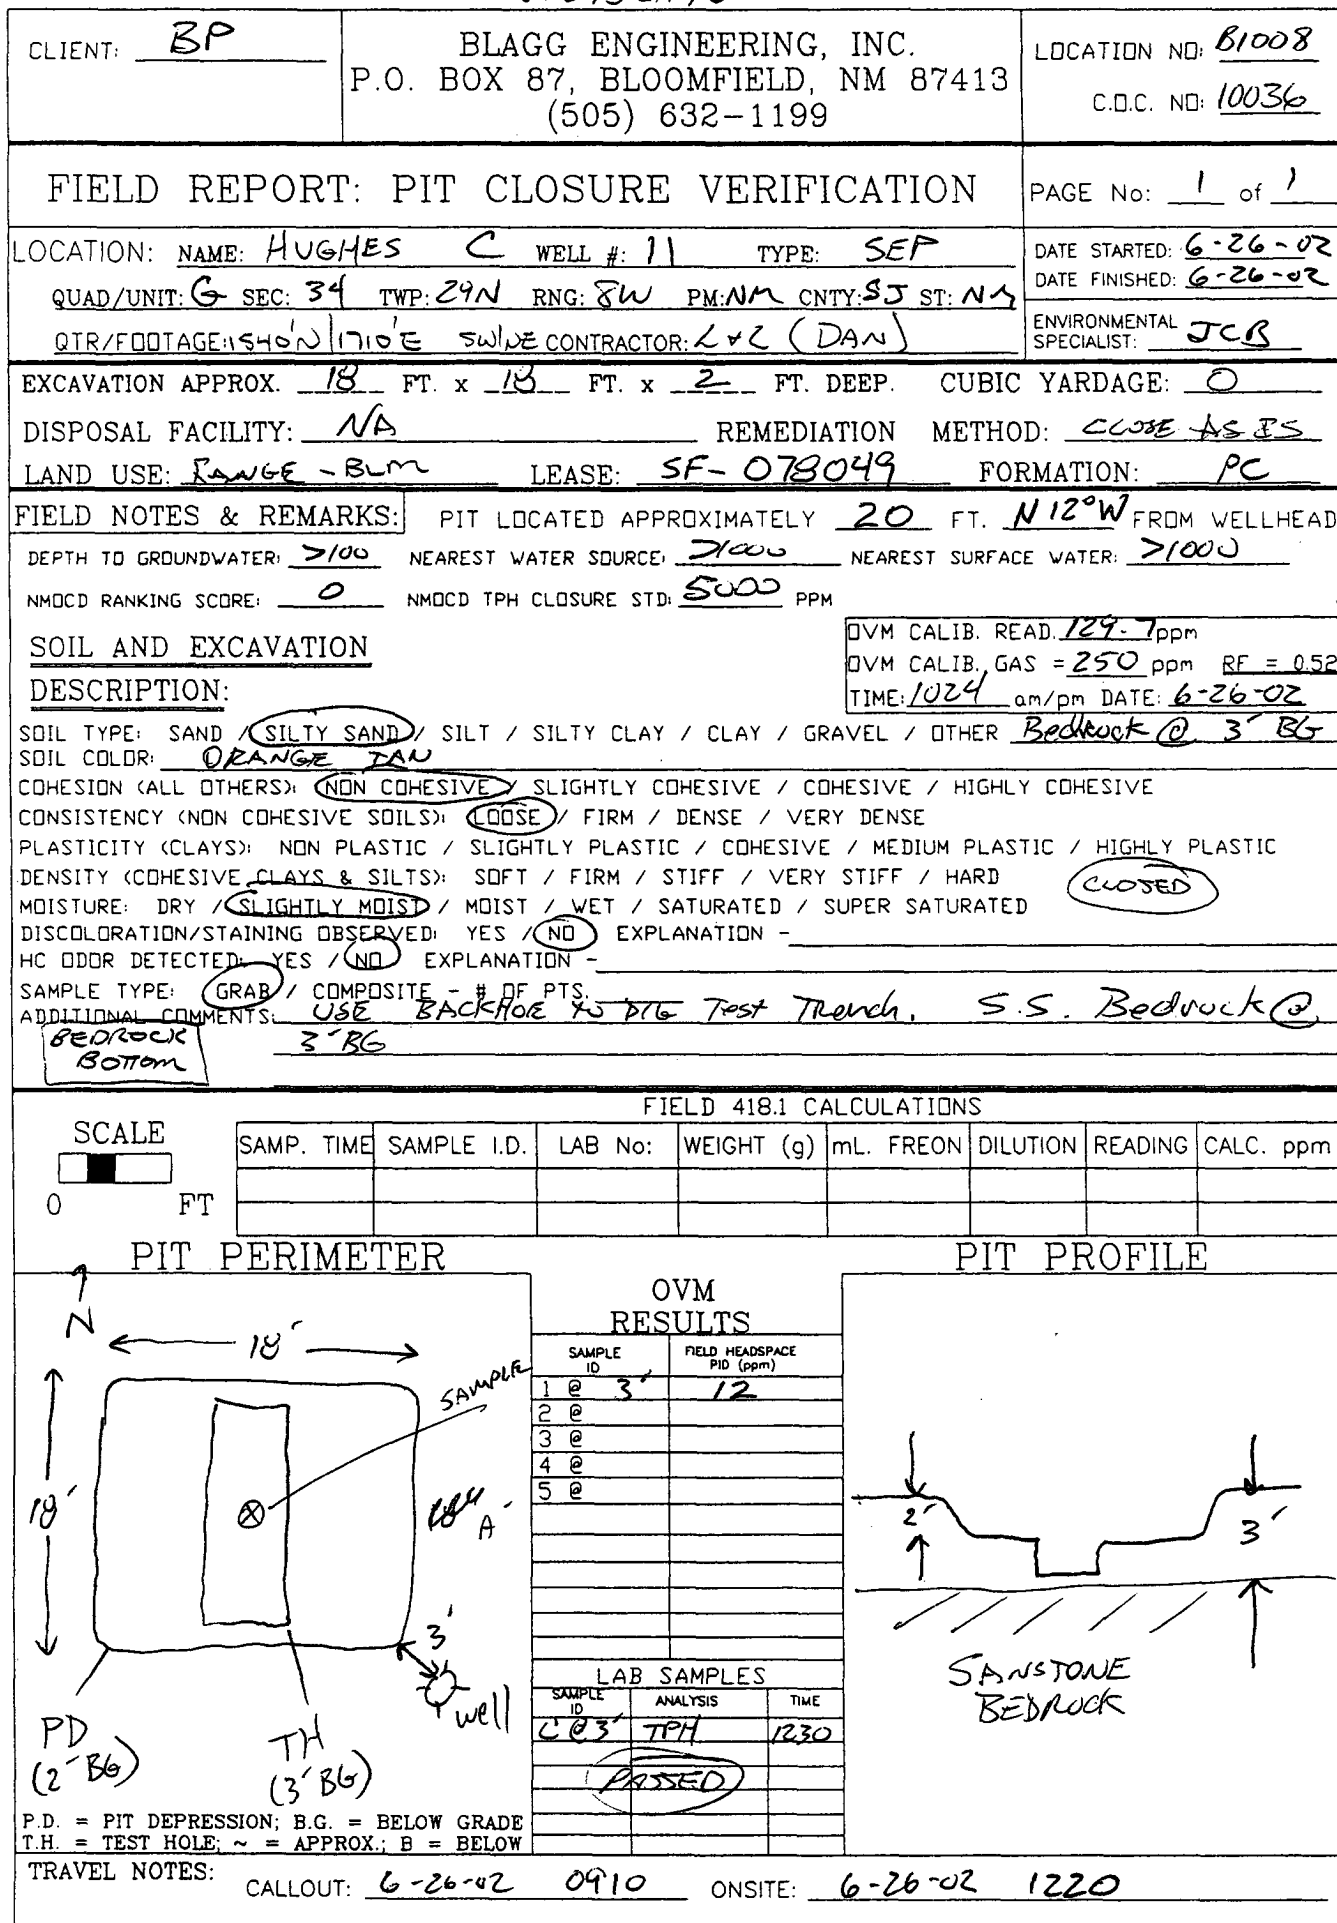 CLIENT: BP
BLAGG ENGINEERING, INC.
P.O. BOX 87, BLOOMFIELD, NM 87413
(505) 632-1199
LOCATION NO: B1008
C.O.C. NO: 10036
FIELD REPORT: PIT CLOSURE VERIFICATION
PAGE No: 1 of 1
LOCATION: NAME: HUGHES C WELL #: 11 TYPE: SEP
QUAD/UNIT: G SEC: 34 TWP: 29N RNG: 8W PM: NM CNTY: SJ ST: NM
QTR/FOOTAGE: 1540'N 1710'E SW/NE CONTRACTOR: L+L (DAN)
DATE STARTED: 6-26-02
DATE FINISHED: 6-26-02
ENVIRONMENTAL
SPECIALIST: JCB
EXCAVATION APPROX. 18 FT. x 18 FT. x 2 FT. DEEP. CUBIC YARDAGE: 0
DISPOSAL FACILITY: NA REMEDIATION METHOD: CLOSE AS IS
LAND USE: RANGE - BLM LEASE: SF-078049 FORMATION: PC
FIELD NOTES & REMARKS: PIT LOCATED APPROXIMATELY 20 FT. N12°W FROM WELLHEAD
DEPTH TO GROUNDWATER: >100 NEAREST WATER SOURCE: >1000 NEAREST SURFACE WATER: >1000
NMOCD RANKING SCORE: 0 NMOCD TPH CLOSURE STD: 5000 PPM
SOIL AND EXCAVATION
DESCRIPTION:
OVM CALIB. READ. 129.7 ppm
OVM CALIB. GAS = 250 ppm RF = 0.52
TIME: 1024 am/pm DATE: 6-26-02
SOIL TYPE: SAND / SILTY SAND / SILT / SILTY CLAY / CLAY / GRAVEL / OTHER Bedrock @ 3' BG
SOIL COLOR: ORANGE TAN
COHESION (ALL OTHERS): NON COHESIVE / SLIGHTLY COHESIVE / COHESIVE / HIGHLY COHESIVE
CONSISTENCY (NON COHESIVE SOILS): LOOSE / FIRM / DENSE / VERY DENSE
PLASTICITY (CLAYS): NON PLASTIC / SLIGHTLY PLASTIC / COHESIVE / MEDIUM PLASTIC / HIGHLY PLASTIC
DENSITY (COHESIVE CLAYS & SILTS): SOFT / FIRM / STIFF / VERY STIFF / HARD CLOSED
MOISTURE: DRY / SLIGHTLY MOIST / MOIST / WET / SATURATED / SUPER SATURATED
DISCOLORATION/STAINING OBSERVED: YES / NO EXPLANATION -
HC ODOR DETECTED: YES / NO EXPLANATION -
SAMPLE TYPE: GRAB / COMPOSITE - # OF PTS.
ADDITIONAL COMMENTS: USE BACKHOE TO DIG Test Trench. S.S. Bedrock @
3' BG
BEDROCK
BOTTOM
SCALE
0 FT
FIELD 418.1 CALCULATIONS
SAMP. TIME SAMPLE I.D. LAB No: WEIGHT (g) mL. FREON DILUTION READING CALC. ppm
PIT PERIMETER
N
18'
SAMPLE
18'
A'
3'
well
PD
(2' BG)
TH
(3' BG)
P.D. = PIT DEPRESSION; B.G. = BELOW GRADE
T.H. = TEST HOLE; ~ = APPROX.; B = BELOW
OVM
RESULTS
SAMPLE ID FIELD HEADSPACE PID (ppm)
1 @ 3' 12
2 @
3 @
4 @
5 @
LAB SAMPLES
SAMPLE ID ANALYSIS TIME
C @ 3' TPH 1230
PASSED
PIT PROFILE
2'
3'
SANSTONE
BEDROCK
TRAVEL NOTES: CALLOUT: 6-26-02 0910 ONSITE: 6-26-02 1220